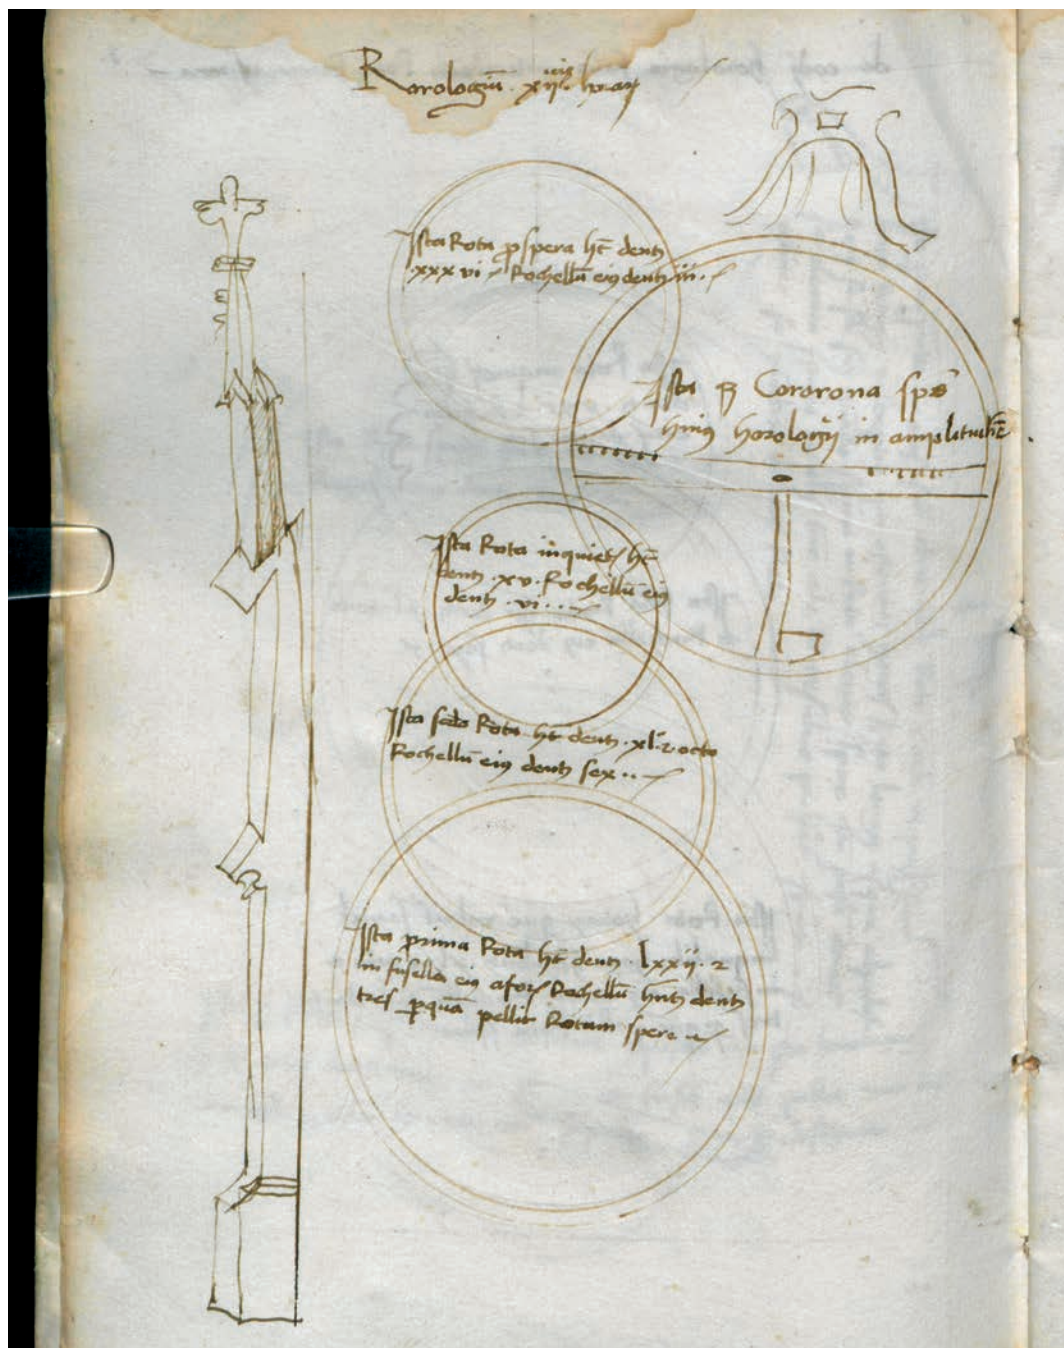 Rorologiū xij horaꝝ
Ista Rota ꝓ spera ht̄ dent
.xxxvi Rochellū eiꝰ dent iii..
Ista ꝫ Cororona
huiꝰ horologij in amplitudīe
Ista Rota inquiet ht̄
dent .xv. Rochellū eiꝰ
dent .vi...
Ista scd̄o Rota ht̄ dent .xl. ⁊ octo
Rochellū eiꝰ dent sex ..
Ista prima Rota ht̄ dent .lxxij. ⁊
in fusella eiꝰ afor Rochellū hnt̄ dent
tres ꝑquā pellit Rotam spere